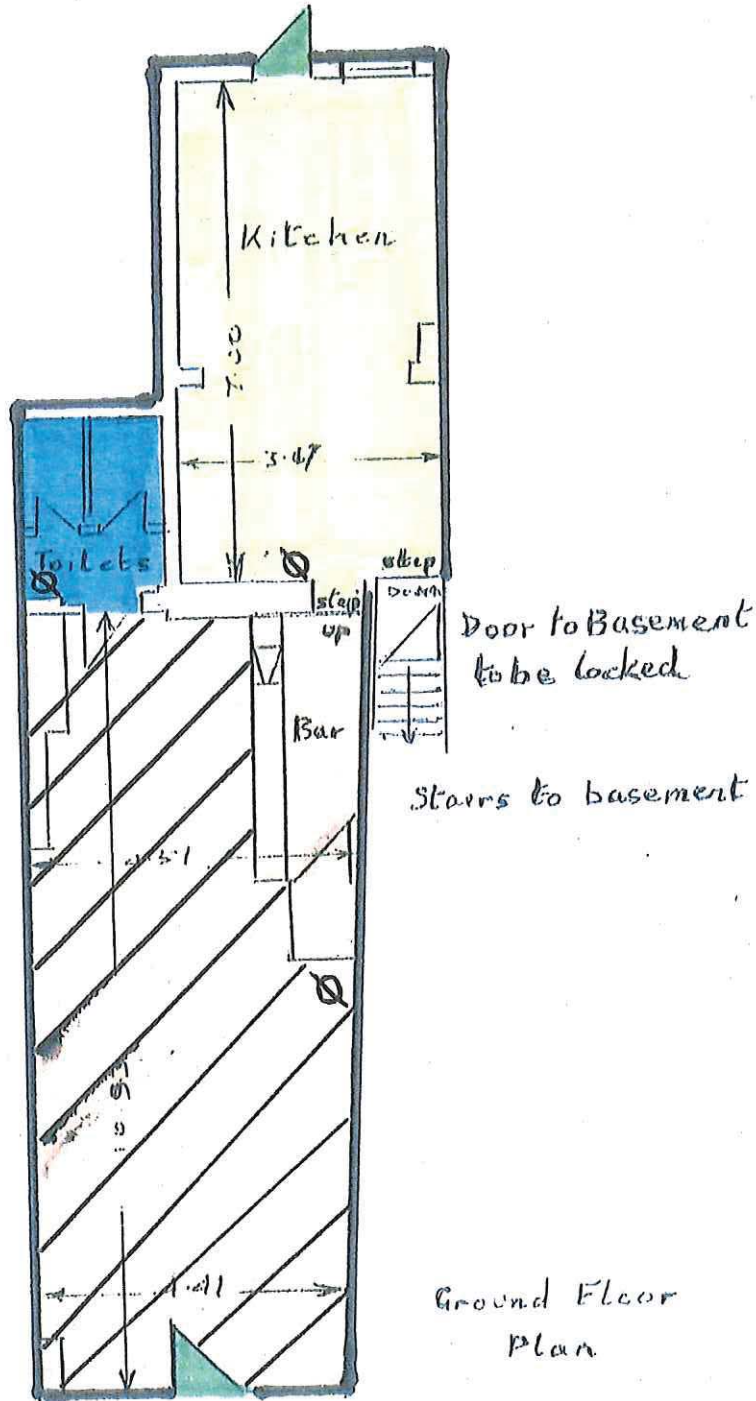 Kitchen
7.00
3.47
Toilets
step
Down
step
up
Door to Basement
to be locked
Bar
Stairs to basement
4.51
10.97
4.41
Ground Floor
Plan